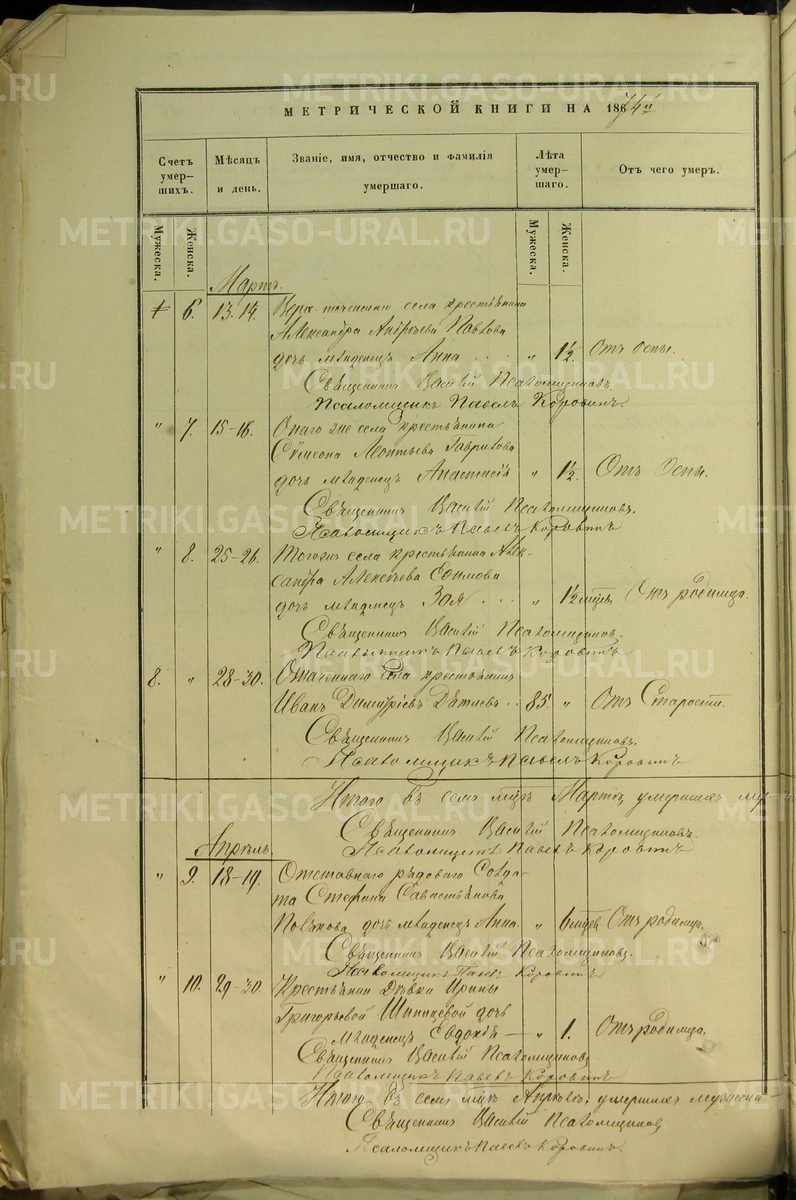 МЕТРИЧЕСКОЙ КНИГИ НА 1874й
Счетъ умер-шихъ.
Мѣсяцъ и день.
Званіе, имя, отчество и фамилія умершаго.
Лѣта умер-шаго.
Отъ чего умеръ.
Мужеска.
Женска.
Мужеска.
Женска.
Мартъ.
6. 13. 14. села крестьянина
Александра Андрѣева Павлова
дочь младенецъ Анна . . . „ 1½. Отъ Оспы.
Священникъ Василій Псаломщиковъ.
Псаломщикъ Павелъ Коровинъ.
„ 7. 15-16. Онаго же села крестьянина
Сѵмеона Леонтьева Гаврилова
дочь младенецъ Анастасія „ 1½. Отъ Оспы.
Священникъ Василій Псаломщиковъ.
Псаломщикъ Павелъ Коровинъ
„ 8. 25-26. Тогожъ села крестьянина Алек-
сандра Алексѣева Ефимова
дочь младенецъ Зоя . . . „ 1½ Отъ родимца.
Священникъ Василій Псаломщиковъ.
Псаломщикъ Павелъ Коровинъ
8. „ 28-30. села крестьянинъ
Иванъ Димитріевъ . . 85. „ Отъ Старости.
Священникъ Василій Псаломщиковъ.
Псаломщикъ Павелъ Коровинъ
Итого въ семъ мцѣ Мартѣ умершихъ
Священникъ Василій Псаломщиковъ.
Псаломщикъ Павелъ Коровинъ
Апрѣль.
„ 9. 18-19. Отставнаго рядоваго Солда-
та Стефана Савастьянова
дочь младенецъ Анна. „ 6 Отъ родимца.
Священникъ Василій Псаломщиковъ.
Псаломщикъ Павелъ Коровинъ
„ 10. 29-30. дѣвки Ирины
Григорьевой дочь
младенецъ Евдокія — „ 1. Отъ родимца.
Священникъ Василій Псаломщиковъ
Псаломщикъ Павелъ Коровинъ
Итого въ семъ мцѣ Апрѣлѣ умершихъ
Священникъ Василій Псаломщиковъ
Псаломщикъ Павелъ Коровинъ.
METRIKI.GASO-URAL.RU